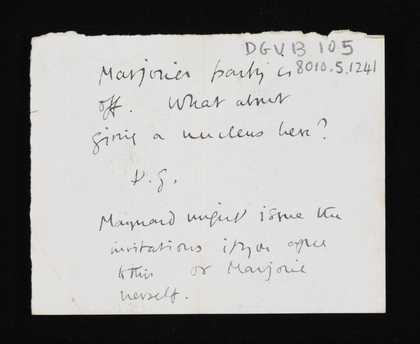 DGVB 105
8010.5.1241
Marjories party is
off. What about
giving a nucleus here?
D.G.
Maynard might issue the
invitations if you agree
to this or Marjorie
herself.